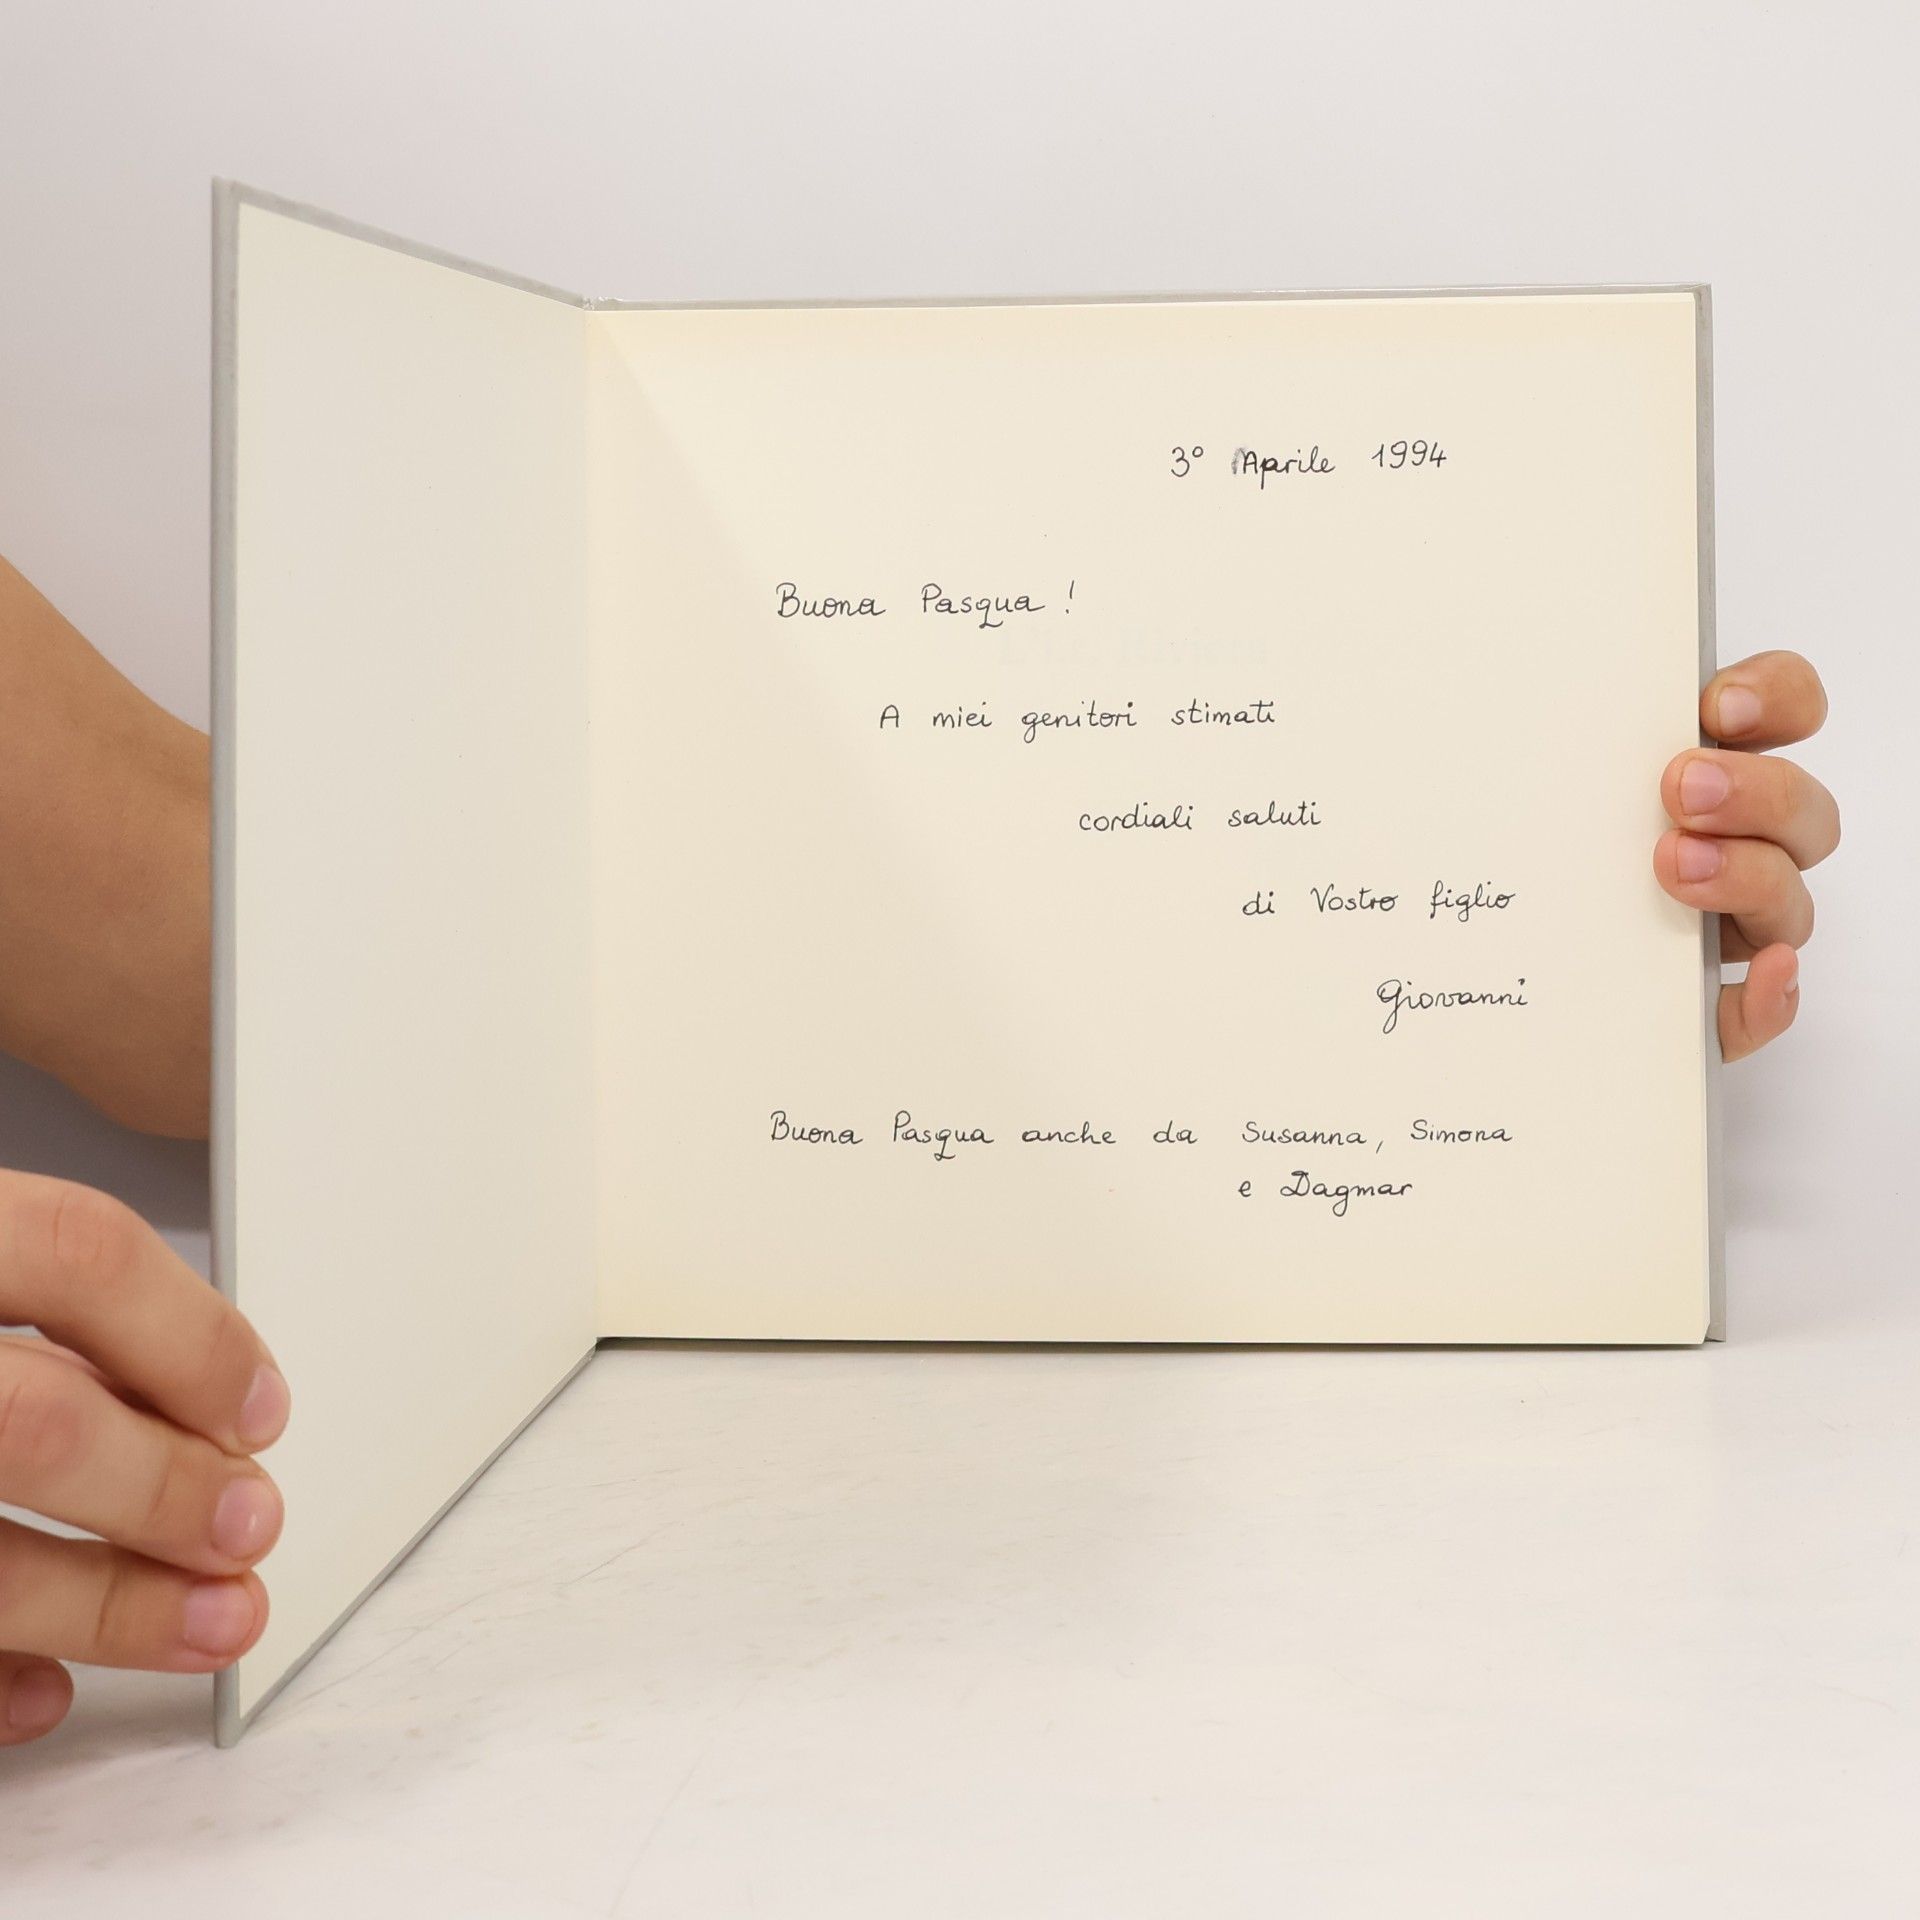 3° Aprile 1994
Buona Pasqua!
A miei genitori stimati
cordiali saluti
di Vostro figlio
Giovanni
Buona Pasqua anche da Susanna, Simona
e Dagmar